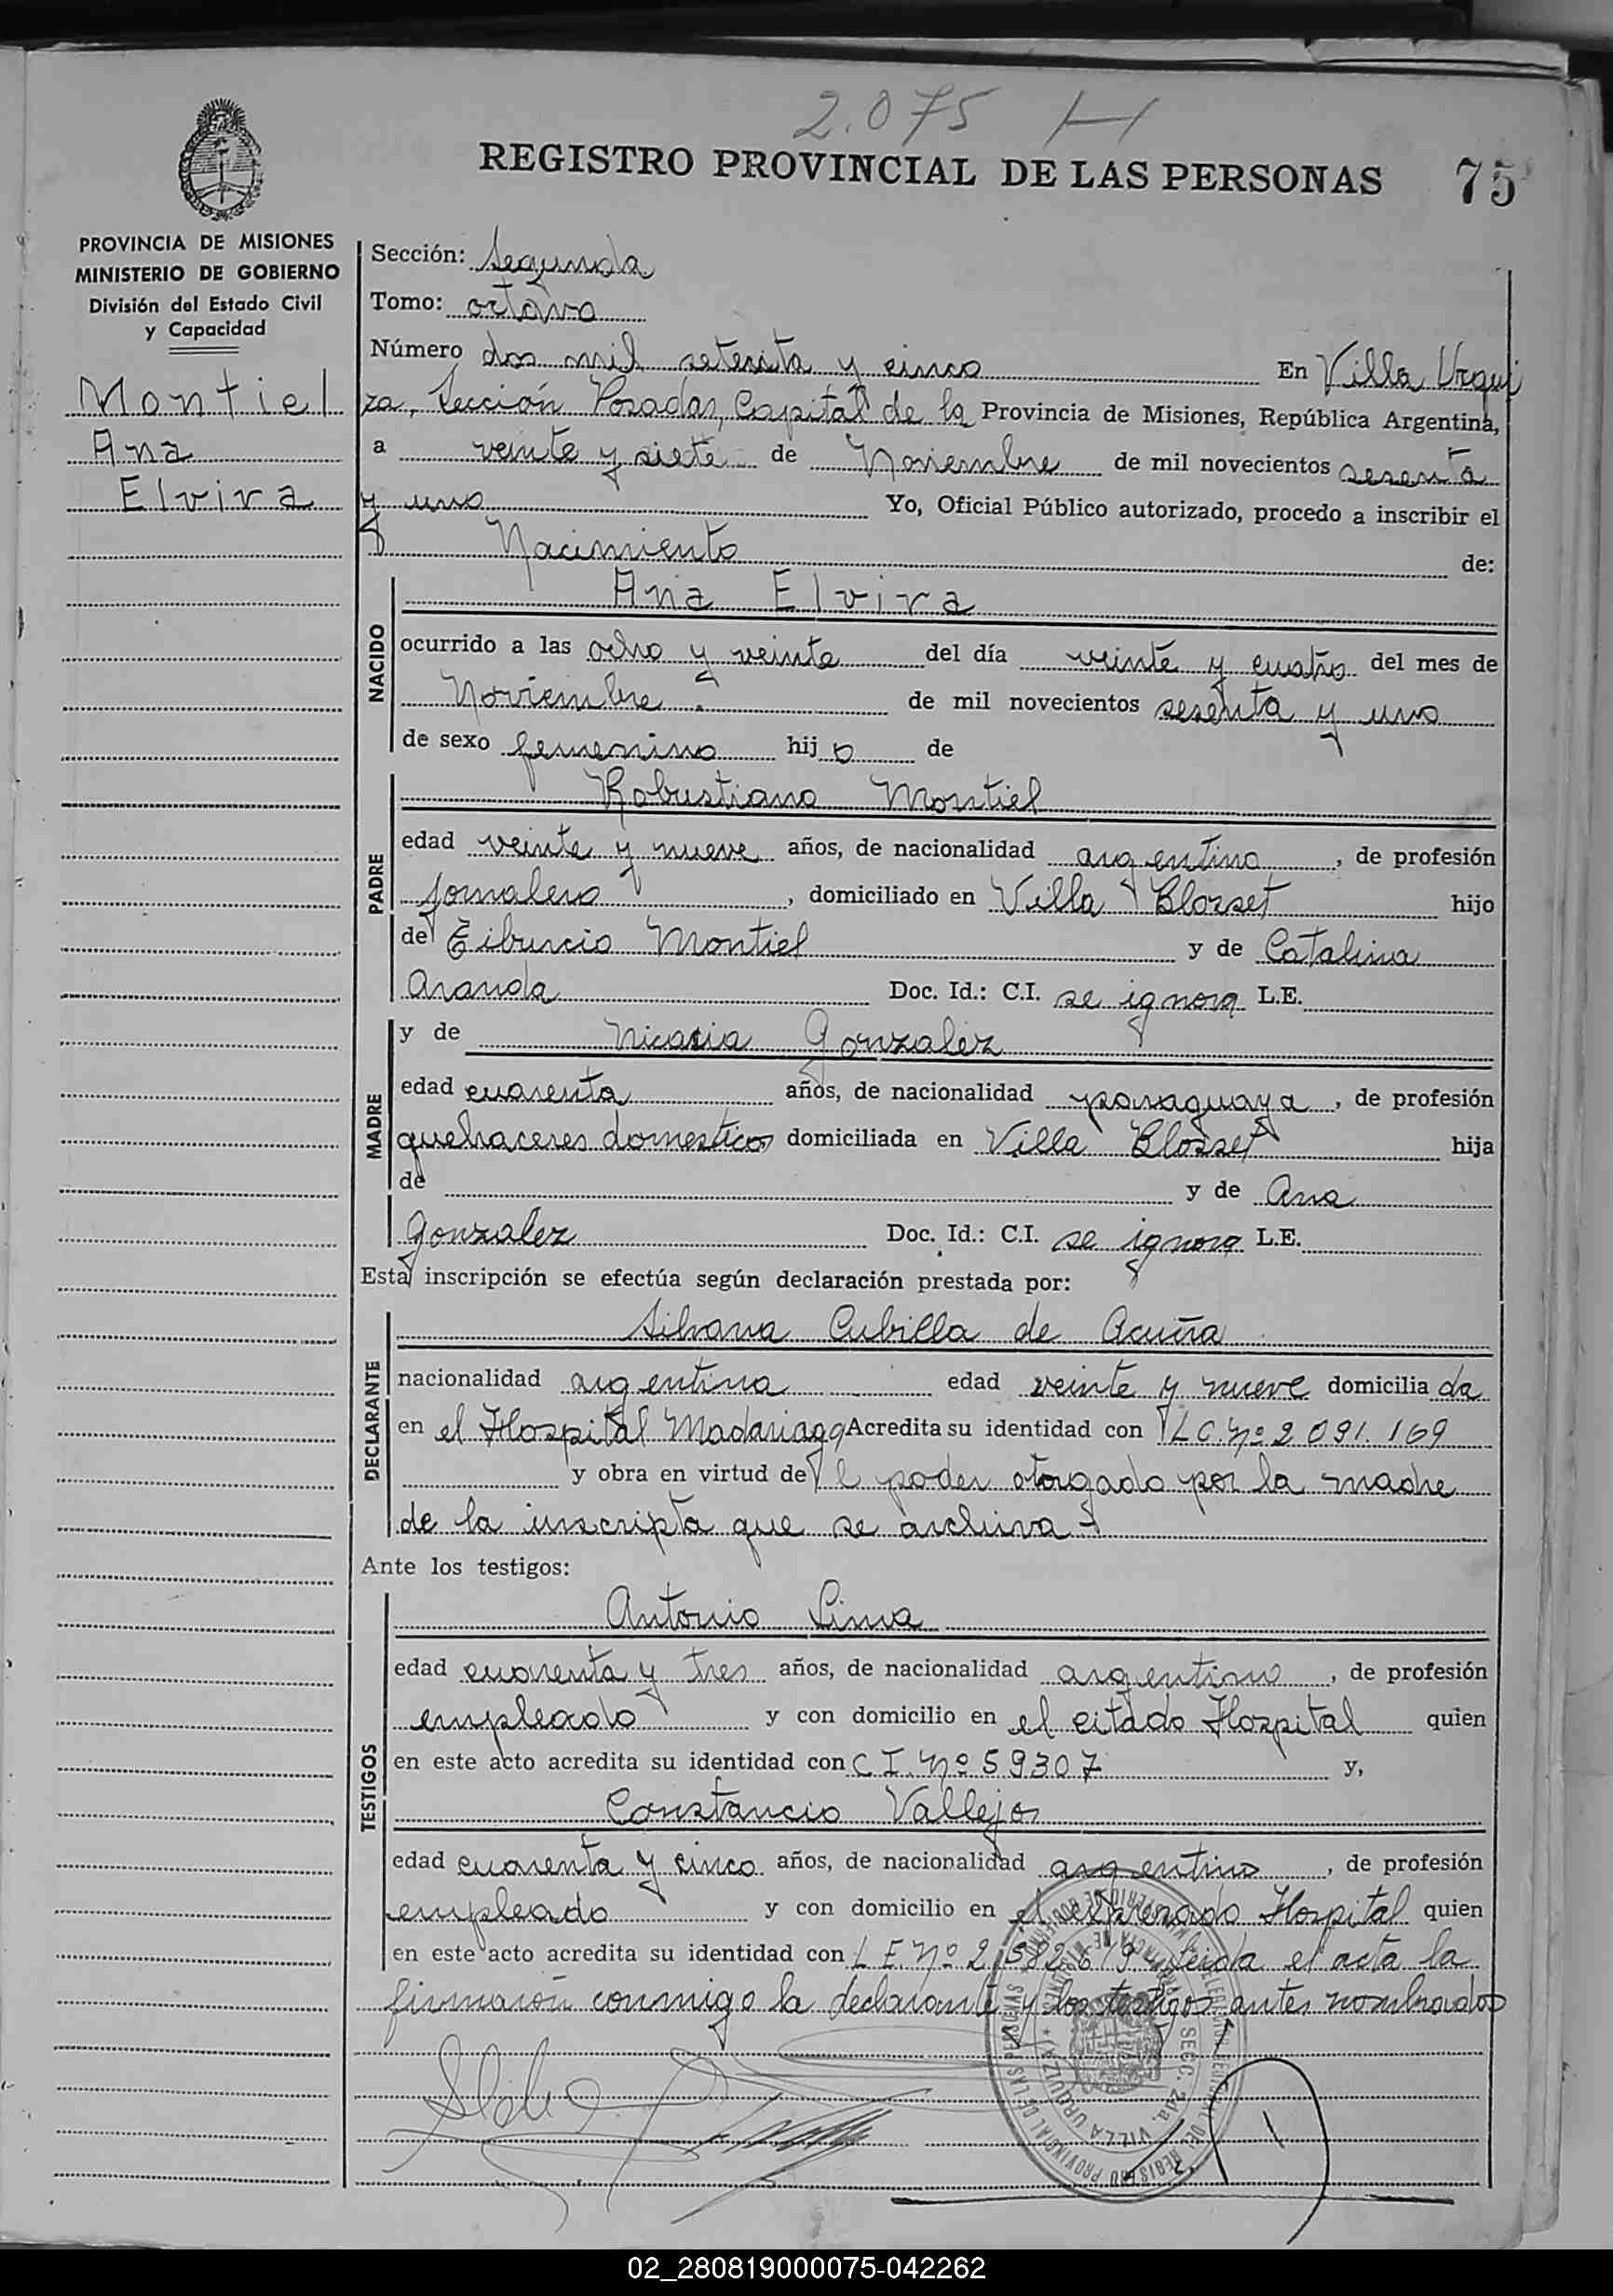 2.075 H
REGISTRO PROVINCIAL DE LAS PERSONAS 75
PROVINCIA DE MISIONES
MINISTERIO DE GOBIERNO
División del Estado Civil
y Capacidad
Montiel
Ana
Elvira
Sección: Segunda
Tomo: octavo
Número dos mil setenta y cinco En Villa Urqui
za, Sección Posadas, Capital de la Provincia de Misiones, República Argentina,
a veinte y siete de Noviembre de mil novecientos sesenta
y uno Yo, Oficial Público autorizado, procedo a inscribir el
Nacimiento de:
NACIDO
Ana Elvira
ocurrido a las ocho y veinte del día veinte y cuatro del mes de
Noviembre de mil novecientos sesenta y uno
de sexo femenino hij o de
PADRE
Robustiano Montiel
edad veinte y nueve años, de nacionalidad argentino, de profesión
jornalero, domiciliado en Villa Blosset hijo
de Tiburcio Montiel y de Catalina
Aranda Doc. Id.: C.I. se ignora L.E.
MADRE
y de Nicasia Gonzalez
edad cuarenta años, de nacionalidad paraguaya, de profesión
quehaceres domesticos domiciliada en Villa Blosset hija
de y de Ana
Gonzalez Doc. Id.: C.I. se ignora L.E.
Esta inscripción se efectúa según declaración prestada por:
DECLARANTE
Silvana Cubilla de Acuña
nacionalidad argentina edad veinte y nueve domicilia da
en el Hospital Madariaga Acredita su identidad con L C. Nº 2 091.169
y obra en virtud de l poder otorgado por la madre
de la inscripta que se archiva
Ante los testigos:
TESTIGOS
Antonio Lima
edad cuarenta y tres años, de nacionalidad argentino, de profesión
empleado y con domicilio en el citado Hospital quien
en este acto acredita su identidad con C I. Nº 59307 y,
Constancio Vallejos
edad cuarenta y cinco años, de nacionalidad argentino, de profesión
empleado y con domicilio en el expresado Hospital quien
en este acto acredita su identidad con L E Nº 2.582.619 Leida el acta la
firmaron conmigo la declarante y los testigos antes nombrados
SECC. 2da. VILLA URQUIZA
02_280819000075-042262